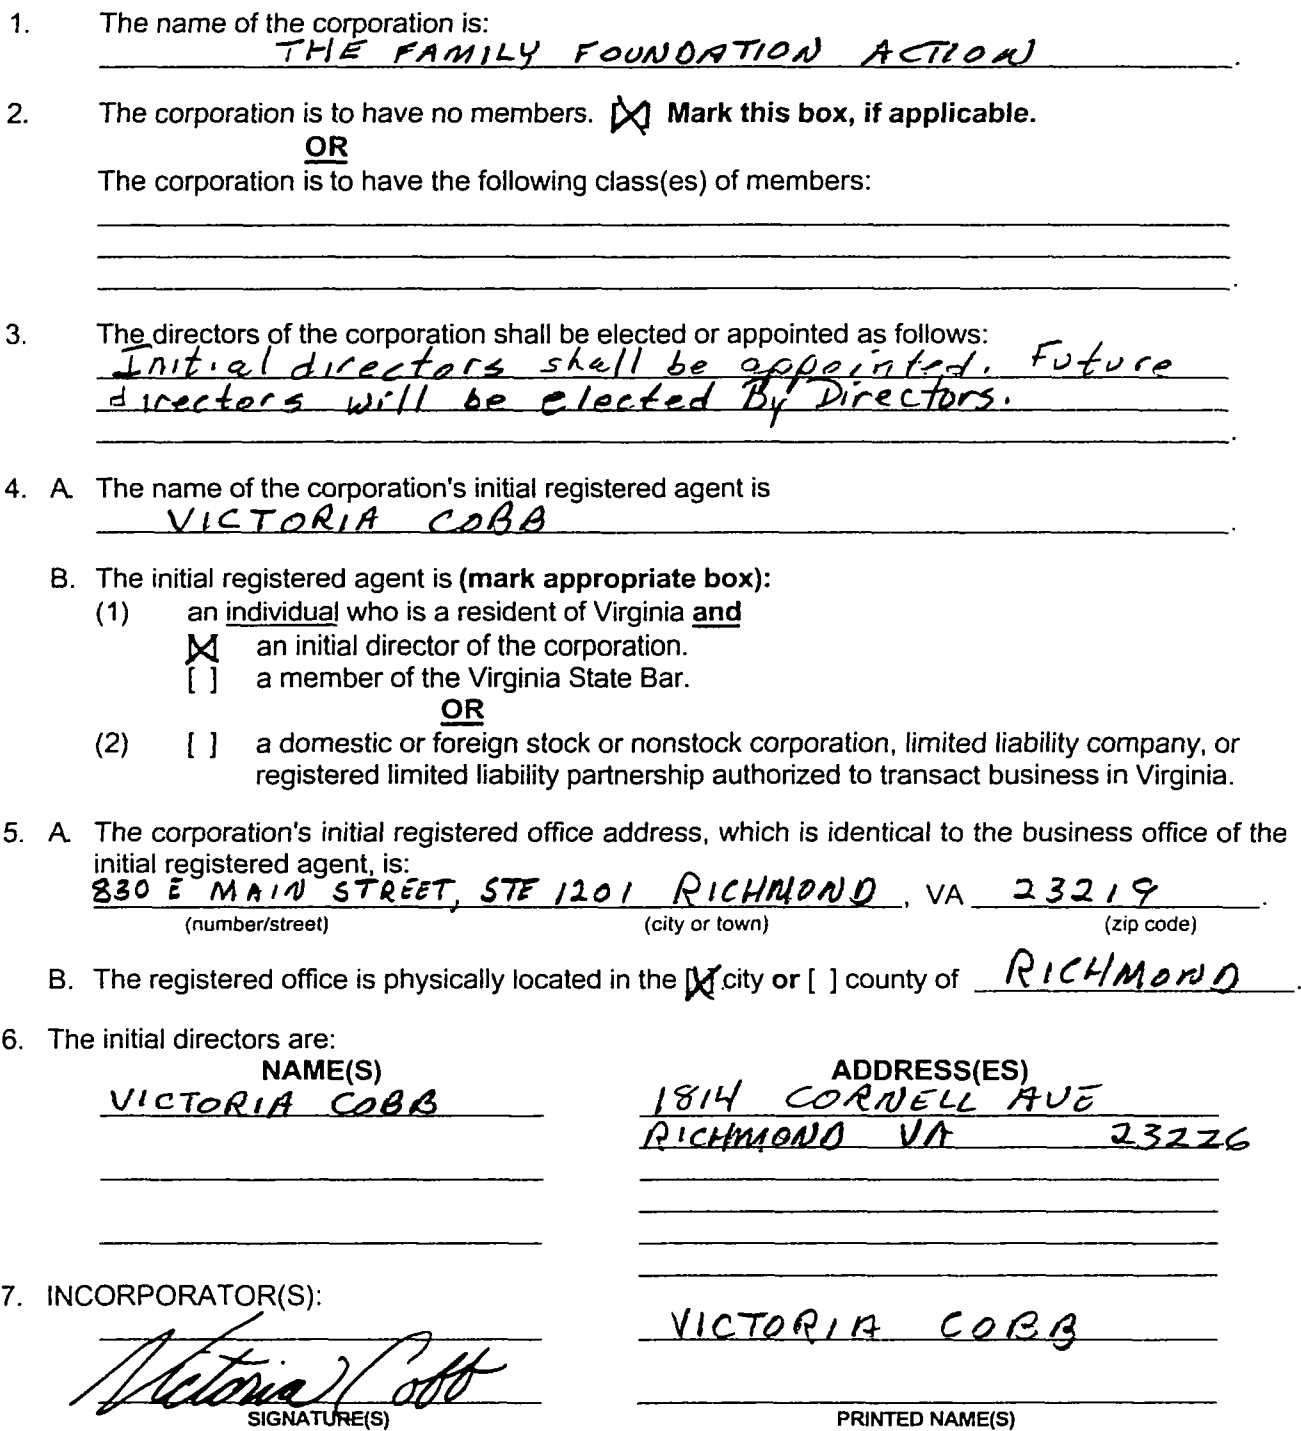 1. The name of the corporation is:
THE FAMILY FOUNDATION ACTION.
2. The corporation is to have no members. [X] Mark this box, if applicable.
OR
The corporation is to have the following class(es) of members:
3. The directors of the corporation shall be elected or appointed as follows:
Initial directors shall be appointed. Future
directors will be elected By Directors.
4. A. The name of the corporation's initial registered agent is
VICTORIA COBB.
B. The initial registered agent is (mark appropriate box):
(1) an individual who is a resident of Virginia and
[X] an initial director of the corporation.
[ ] a member of the Virginia State Bar.
OR
(2) [ ] a domestic or foreign stock or nonstock corporation, limited liability company, or
registered limited liability partnership authorized to transact business in Virginia.
5. A. The corporation's initial registered office address, which is identical to the business office of the
initial registered agent, is:
830 E MAIN STREET, STE 1201 RICHMOND, VA 23219.
(number/street) (city or town) (zip code)
B. The registered office is physically located in the [X] city or [ ] county of RICHMOND.
6. The initial directors are:
NAME(S) ADDRESS(ES)
VICTORIA COBB 1814 CORNELL AVE
RICHMOND VA 23226
7. INCORPORATOR(S):
VICTORIA COBB
Victoria Cobb
SIGNATURE(S) PRINTED NAME(S)